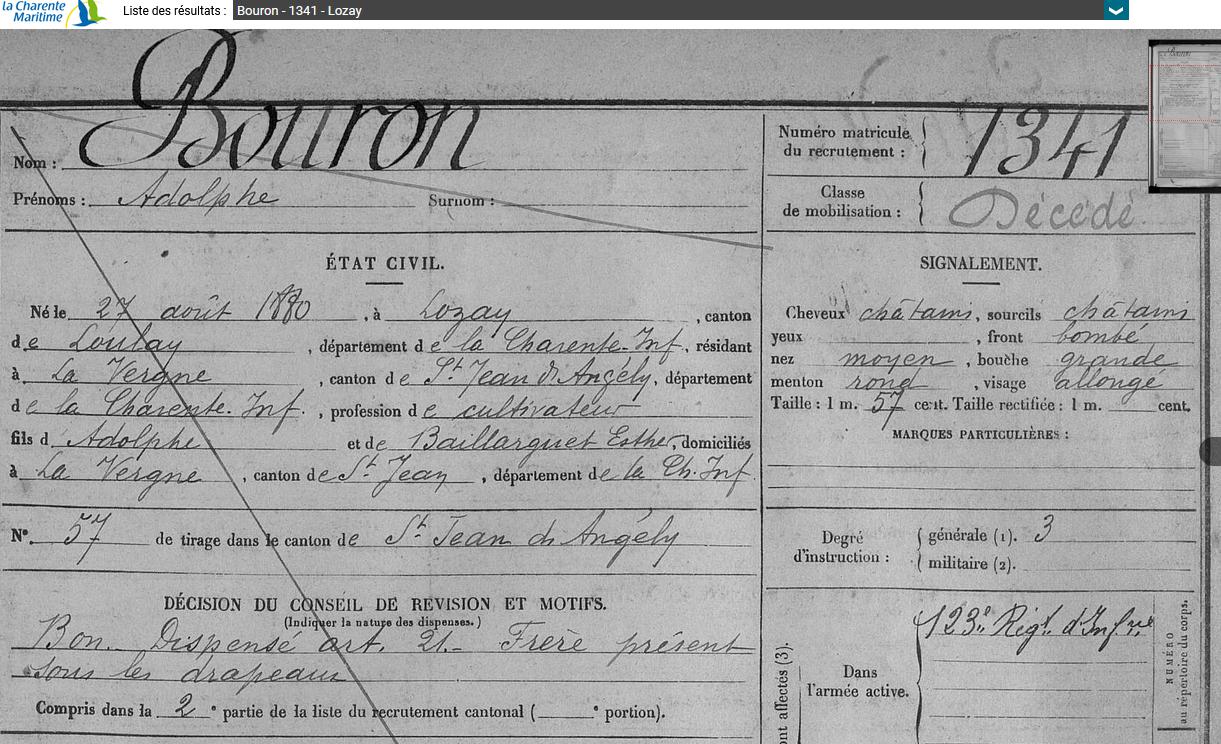 la Charente
Maritime
Liste des résultats : Bouron - 1341 - Lozay
Nom : Bouron
Prénoms : Adolphe Surnom :
Numéro matricule du recrutement : 1341
Classe de mobilisation : Décédé
ÉTAT CIVIL.
Né le 27 août 1880, à Lozay, canton
de Loulay, département de la Charente-Inf, résidant
à La Vergne, canton de St Jean d'Angély, département
de la Charente. Inf., profession de cultivateur
fils d Adolphe et de Baillarguet Esther, domiciliés
à La Vergne, canton de St Jean, département de la Ch. Inf.
No. 57 de tirage dans le canton de St Jean d'Angély
DÉCISION DU CONSEIL DE REVISION ET MOTIFS.
(Indiquer la nature des dispenses.)
Bon. Dispensé art. 21.- Frère présent
sous les drapeaux
Compris dans la 2e partie de la liste du recrutement cantonal ( e portion).
SIGNALEMENT.
Cheveux châtains, sourcils châtains
yeux , front bombé
nez moyen, bouche grande
menton rond, visage allongé
Taille : 1 m. 57 cent. Taille rectifiée : 1 m. cent.
MARQUES PARTICULIÈRES :
Degré d'instruction : générale (1). 3
militaire (2).
Dans l'armée active. 123e Rigt d'Infrie
ont affectés (3).
NUMÉRO
au répertoire du corps.